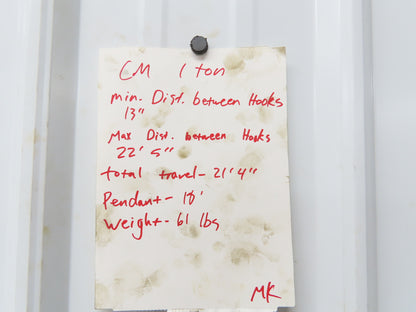 CM 1 ton
min. Dist. between Hooks
13"
Max Dist. between Hooks
22' 5"
total travel - 21' 4"
Pendant - 18'
weight - 61 lbs
MK